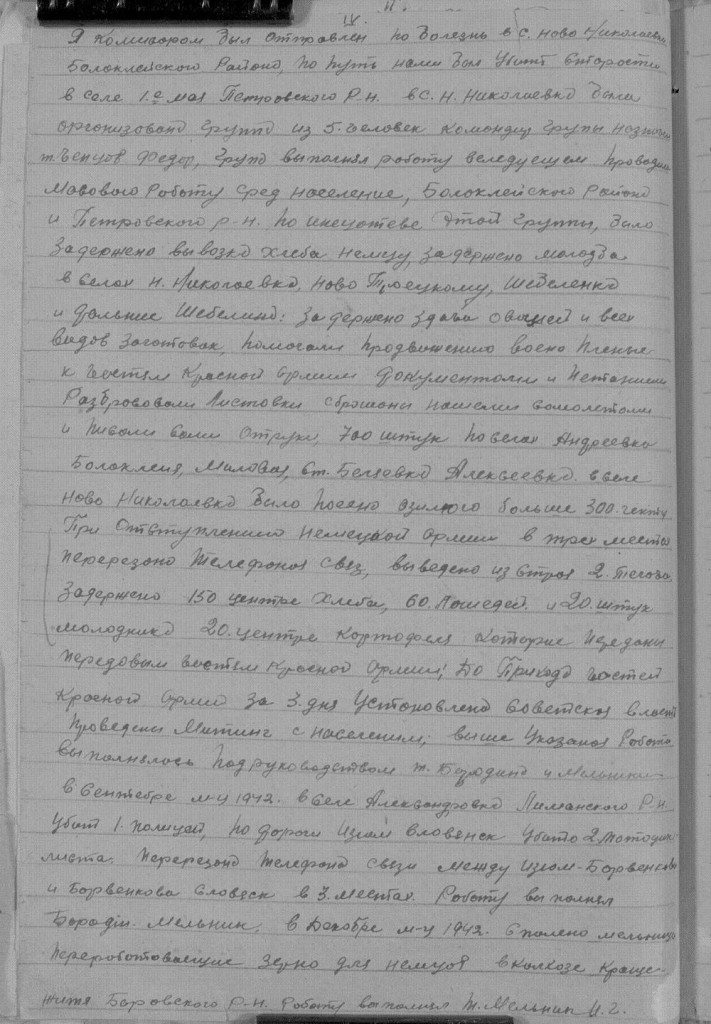 IV.
Я комисаром был отправлен по болезнь в с. ново Николаевк
Балаклейского Района, по путь нами был убит староста
в селе 1.е мая Петровского Р-н. в с. Н. Николаевка была
организована група из 5. человек командир групы назнач
т. Ченцов Федор, група выполнял работу следуещем проводил
Масового Роботу сред население, Балаклейского района
и Петровского р-н. по инецотеве этой группы, было
задержено вывозка хлеба немцу, задержено молодьба
в селах н. Николаевка, ново Троецкому, Шебеленка
и дальние Шебелинд: задержено здача овощей и всех
видов заготовак, помогали продвижению воено пленые
к частям Красной армии документами и
Разбрововали Листовки сброшоны нашими самолетами
и писали сами от руки 700 штук по селах Андреевка
Балаклея, Миловая, ст. Алексеевка. в селе
ново Николаевка было посено озимого больше 300. гектр
При отвтуплению немецкой армии в трех местах
перерезано телефоная связ, выведено из строя 2.
Задержено 150 центре хлеба, 60. лошедей. и 20. штук
молодника 20. центре картофеля которые переданы
передовым частям Красной армии; До Прихода частей
Красной арми за 3. дня установлена Советская власт
проведены Митинг с населением; выше указаная Робота
выполнялось под руководством т. Бородина и Мельник-
в сентебре м-ц 1942. в селе Александровка Лиманского Р-н.
убит 1. полицай, по дороги Изюм Словенск убито 2. мотоцик
листа. перерезана телефона связи между Изюм-Барвенково
и Барвенкова Словеск в 3. местах. Роботу выполнял
Барадин. Мельник. в Декабре м-ц 1942. Спалено мельница
переработовающие зерно для немцов в колхозе Краще-
житя Боровского р-н. роботу выполнял т. Мельник И. Г.